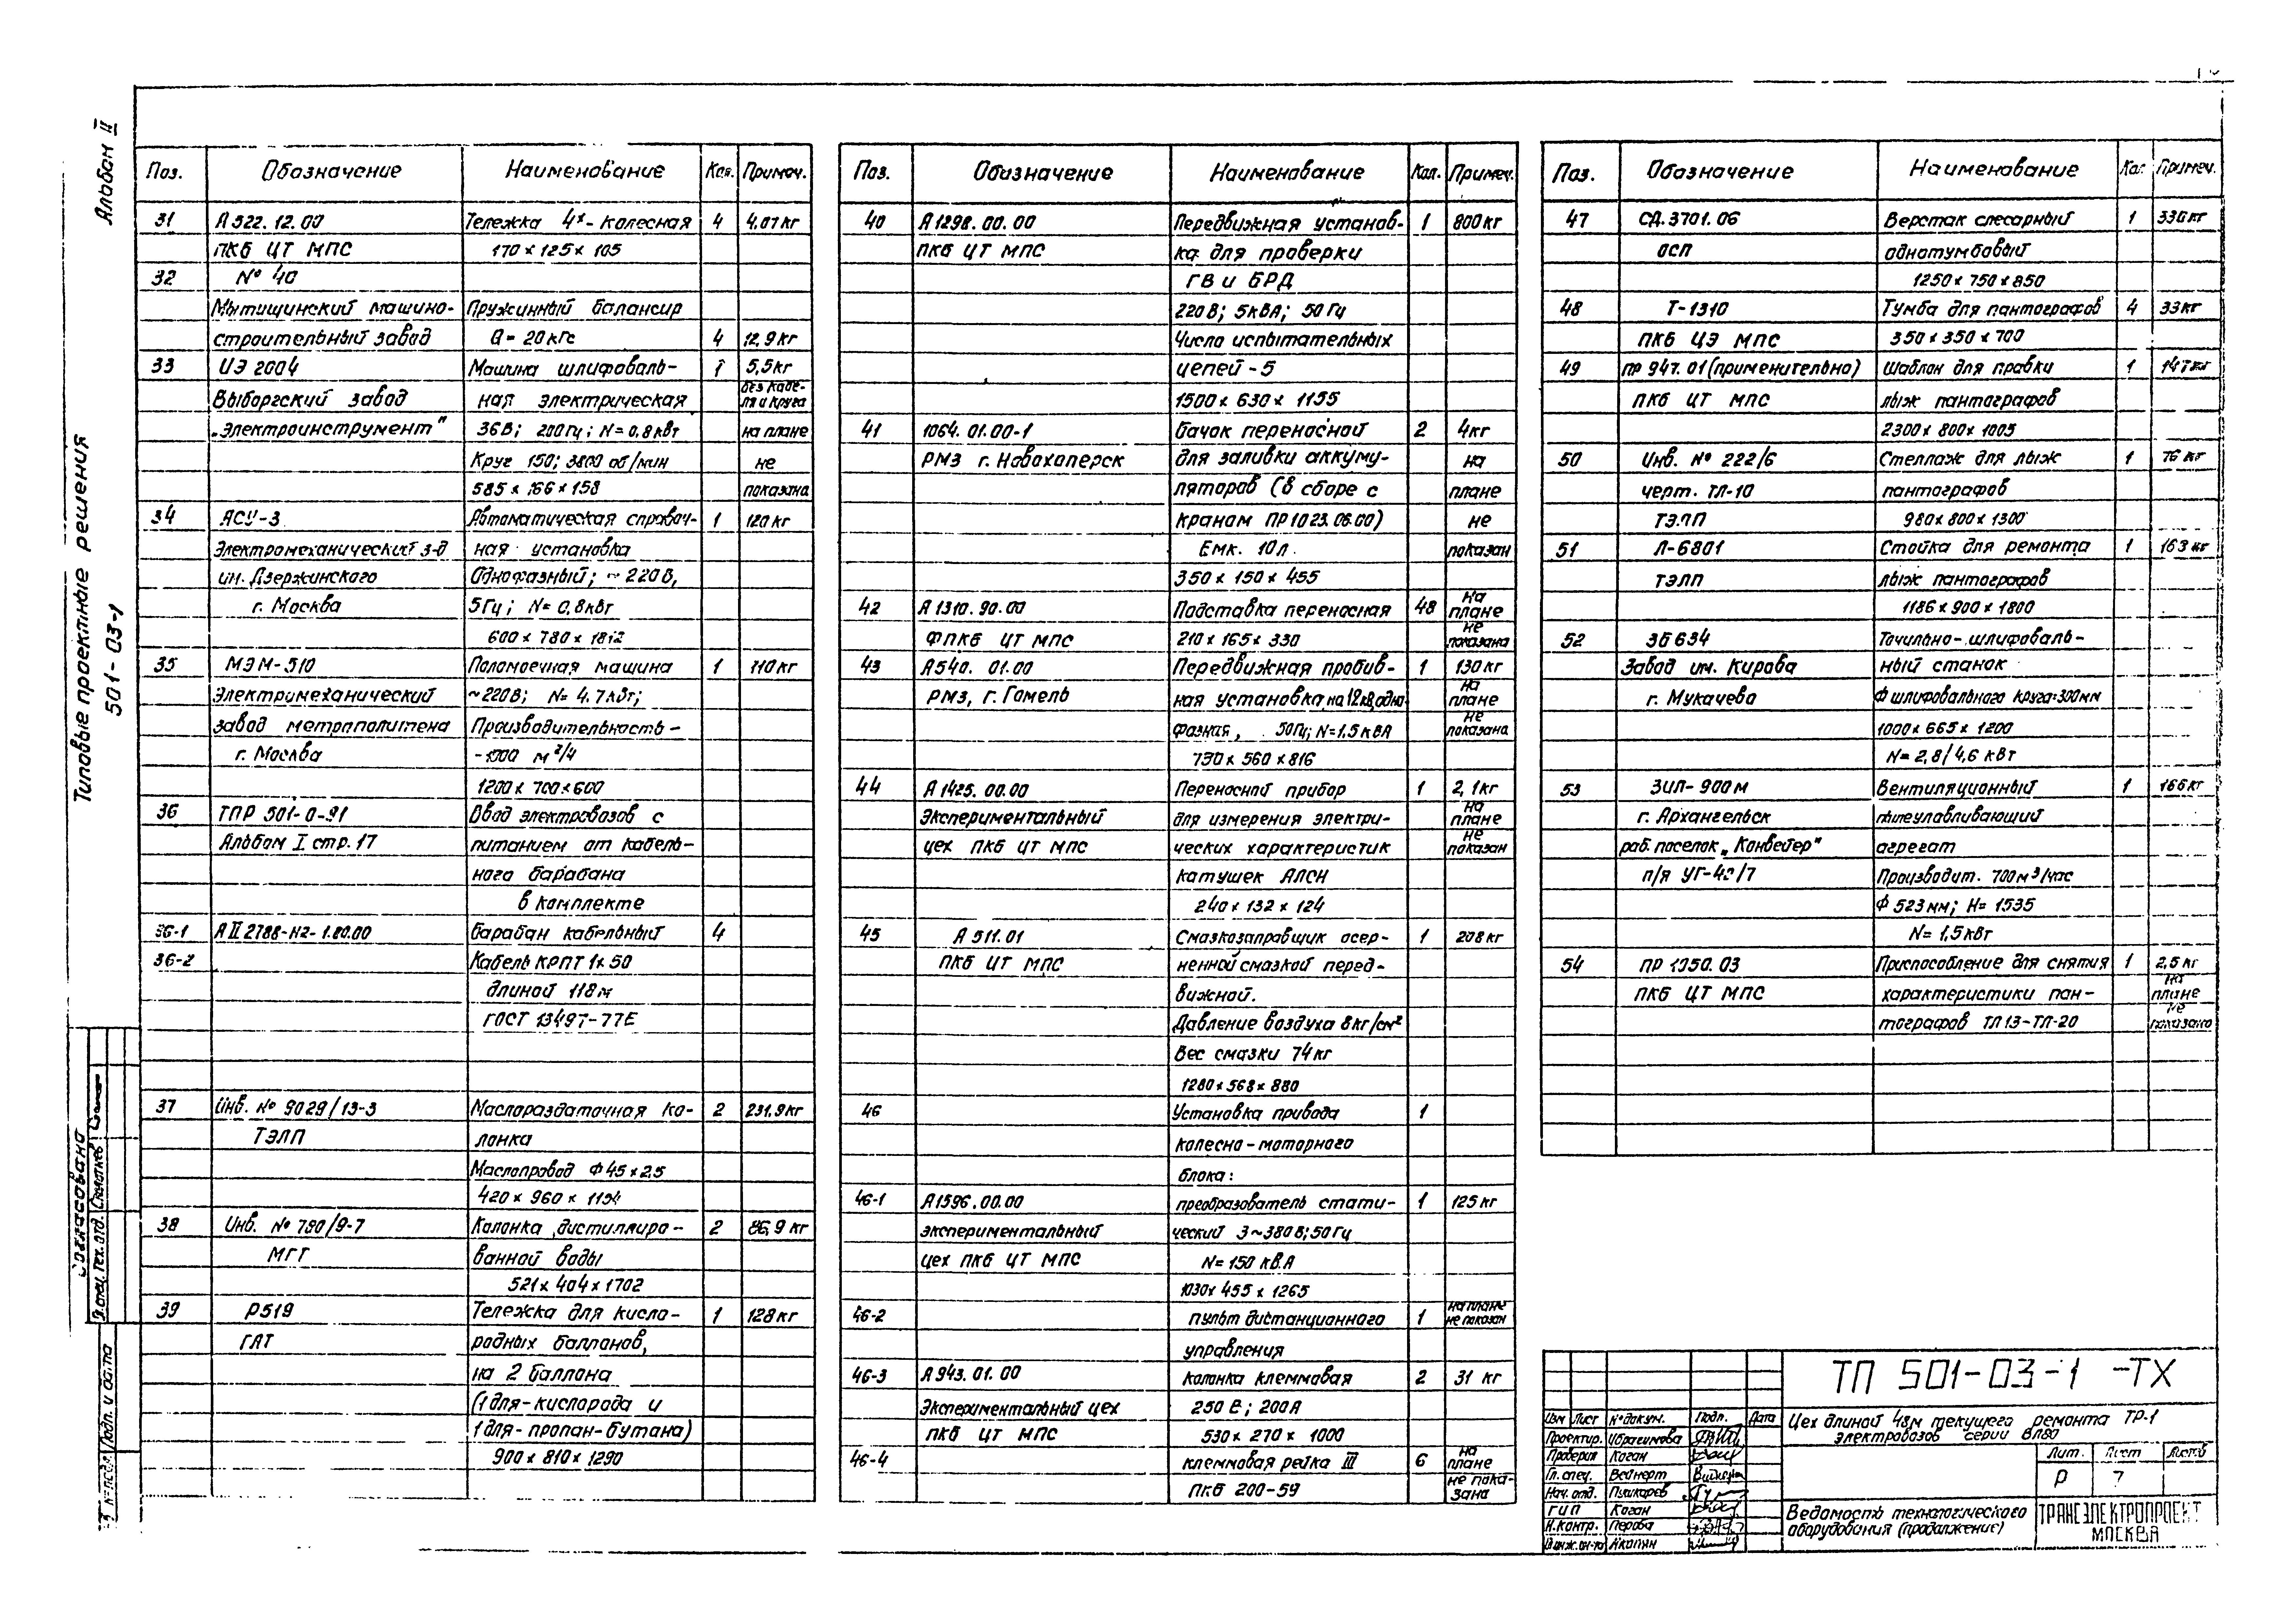 Альбом II
Типовые проектные решения
501-03-1
Поз. Обозначение Наименование Кол. Примеч.
31 А 322.12.00 Тележка 4х-колесная 4 4,07кг
ПКБ ЦТ МПС 170×125×105
32 № 40
Мытищинский машино- Пружинный балансир
строительный завод Q=20кгс 4 12,9кг
33 ИЭ 2004 Машина шлифоваль- 1 5,5кг
Выборгский завод ная электрическая без кабе-
ля и круга
„Электроинструмент" 36В; 200Гц; N=0,8кВт на плане
Круг 150; 3800 об/мин не
585×166×158 показана
34 АСУ-3 Автоматическая справоч- 1 120кг
Электромеханический з-д ная установка
им. Дзержинского Однофазный; ~220В,
г. Москва 5Гц; N=0,8кВт
600×780×1812
35 МЭМ-510 Поломоечная машина 1 110кг
Электромеханический ~220В; N=4,7кВт;
завод метрополитена Производительность-
г. Москва -1000 м²/ч
1200×700×600
36 ТПР 501-0-91 Ввод электровозов с
Альбом I стр. 17 питанием от кабель-
ного барабана
в комплекте
36-1 А II 2788-Н2-1.80.00 барабан кабельный 4
36-2 Кабель КРПТ 1×50
длиной 118м
ГОСТ 13497-77Е
37 Инв. № 9029/13-3 Маслораздаточная ко- 2 231,9кг
ТЭЛП лонка
Маслопровод Ф45×2,5
420×960×1194
38 Инв. № 780/9-7 Колонка дистиллиро- 2 86,9кг
МГТ ванной воды
521×404×1702
39 Р519 Тележка для кисло- 1 128кг
ГАТ родных баллонов,
на 2 баллона
(1для-кислорода и
1для-пропан-бутана)
900×810×1290
Поз. Обозначение Наименование Кол. Примеч.
40 А1298.00.00 Передвижная установ- 1 800кг
ПКБ ЦТ МПС ка для проверки
ГВ и БРД
220В; 5кВА; 50Гц
Число испытательных
цепей-5
1500×630×1155
41 1064.01.00-1 бачок переносной 2 4кг
РМЗ г. Новохоперск для заливки аккуму- на
ляторов (в сборе с плане
краном ПР1023.06.00) не
Емк. 10л. показан
350×150×455
42 А1310.90.00 Подставка переносная 48 на
плане
ФПКБ ЦТ МПС 210×165×330 не
показана
43 А540.01.00 Передвижная пробив- 1 130кг
РМЗ, г. Гомель ная установка на 12кВ, одно- на
плане
фазная, 50Гц; N=1,5кВА не
показана
730×560×816
44 А1425.00.00 Переносной прибор 1 2,1кг
Экспериментальный для измерения электри- на
плане
цех ПКБ ЦТ МПС ческих характеристик не
показан
катушек АЛСН
240×132×124
45 А511.01 Смазкозаправщик осер- 1 208кг
ПКБ ЦТ МПС ненной смазкой перед-
вижной.
Давление воздуха 8кг/см²
Вес смазки 74кг
1280×568×880
46 Установка привода 1
колесно-моторного
блока:
46-1 А1596.00.00 преобразователь стати- 1 125кг
экспериментальный ческий 3~380В; 50Гц
цех ПКБ ЦТ МПС N=150 кВ.А
1030×455×1265
46-2 пульт дистанционного 1 на плане
не показан
управления
46-3 А943.01.00 колонка клеммовая 2 31 кг
Экспериментальный цех 250 В; 200А
ПКБ ЦТ МПС 530×270×1000
46-4 клеммовая рейка III 6 на
плане
ПКБ 200-59 не пока-
зана
Поз. Обозначение Наименование Кол. Примеч.
47 СД.3701.06 Верстак слесарный 1 330кг
ОСП однотумбовый
1250×750×850
48 Т-1310 Тумба для пантографов 4 33кг
ПКБ ЦЭ МПС 350×350×700
49 ПР 947.01(применительно) Шаблон для правки 1 147кг
ПКБ ЦТ МПС лыж пантографов
2300×800×1005
50 Инв. № 222/6 Стеллаж для лыж 1 76 кг
черт. ТЛ-10 пантографов
ТЭЛП 980×800×1300
51 Л-6801 Стойка для ремонта 1 163 кг
ТЭЛП лыж пантографов
1186×900×1800
52 3Б634 Точильно-шлифоваль-
Завод им. Кирова ный станок
г. Мукачево Ф шлифовального круга=300мм
1000×665×1200
N=2,8/4,6 кВт
53 ЗИЛ-900м Вентиляционный 1 166кг
г. Архангельск пылеулавливающий
раб. поселок „Конвейер" агрегат
п/я УГ-42/7 Производит. 700м³/час
Ф523мм; Н=1535
N=1,5кВт
54 ПР 1350.03 Приспособление для снятия 1 2,5кг
ПКБ ЦТ МПС характеристики пан- на
плане
тографов ТЛ13-ТЛ-20 не
показано
Согласовано
Гл.спец. Тех. отд.
Подп. и дата
ТП 501-03-1 -ТХ
Изм Лист № докум. Подп. Дата
Проектир. Ибрагимова
Проверил Коган
Гл. спец. Вейнерт
Нач. отд. Пушкарев
ГИП Коган
Н.контр. Перова
Акопян
Цех длиной 48м текущего ремонта ТР-1
электровозов серии ВЛ80
Лит. Лист Листов
Р 7
Ведомость технологического
оборудования (продолжение)
ТРАНСЭЛЕКТРОПРОЕКТ
МОСКВА